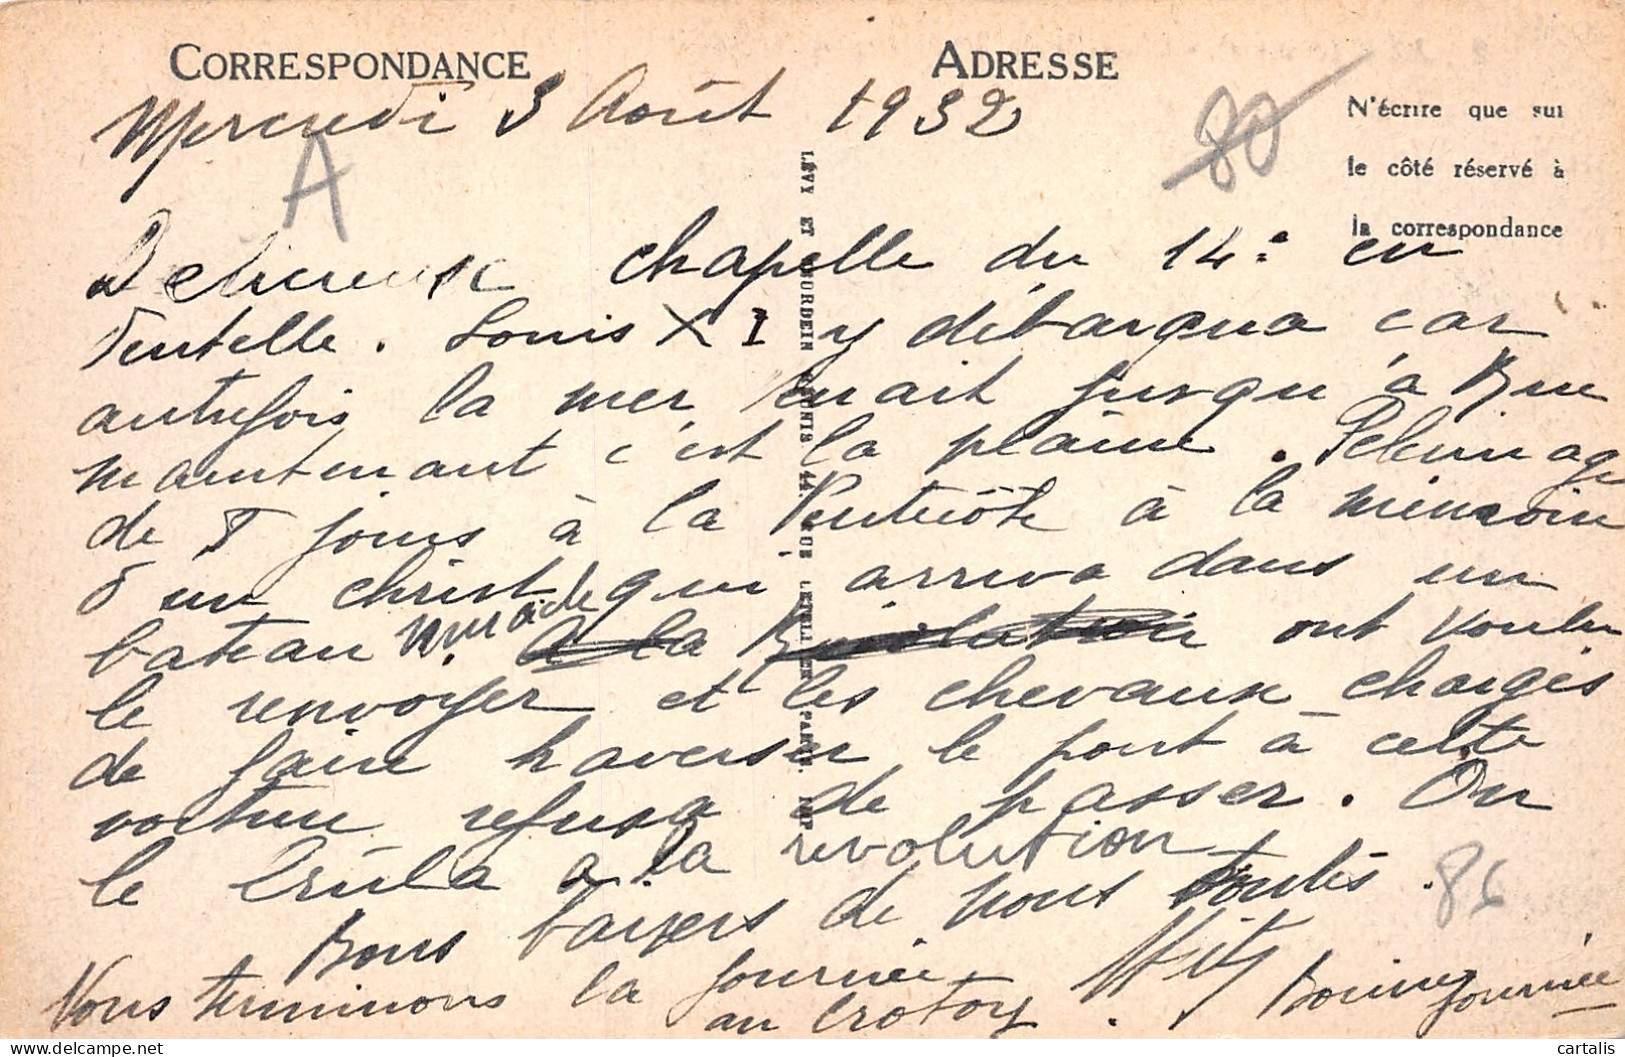 CORRESPONDANCE
ADRESSE
Mercredi 3 Août 1932
80
N'écrire que sur
le côté réservé à
la correspondance
A
Delicieuse chapelle du 14e en
dentelle. Louis XI y débarqua car
autrefois la mer venait jusqu'à Rue
maintenant c'est la plaine. Pelerinage
de 8 jours à la Pentecôte à la mémoire
d'un christ qui arriva dans un
bateau miracle a la Revolution ont voulu
le renvoyer et les chevaux chargés
de faire traverser le pont à cette
voiture refusa de passer. On
le brûla a la revolution
Bons baisers de nous toutes.
86
Nous terminons la journée
au Crotoy.
Bonne journée
LÉVY ET NEURDEIN RÉUNIS 44. RUE LETELLIER PARIS. IMP
cartalis